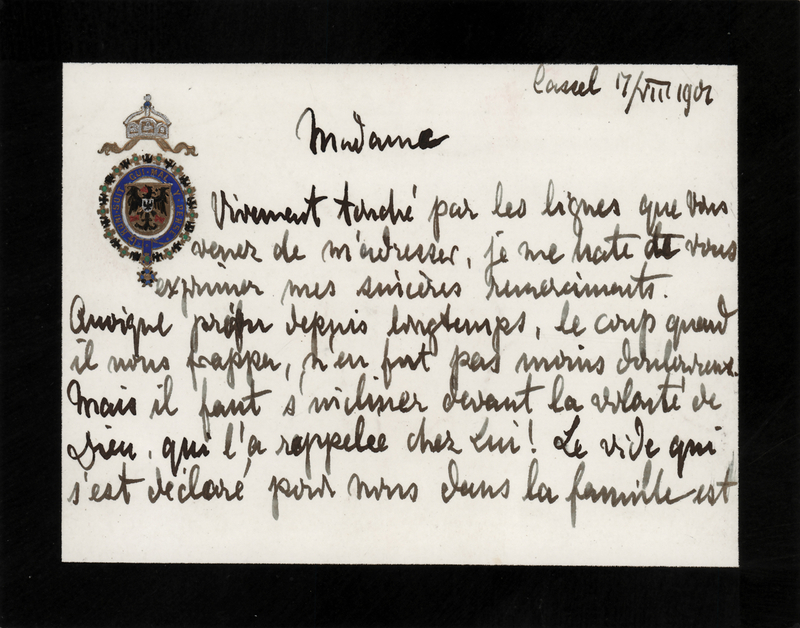 Cassel 17/VIII 1901
Madame
HONI SOIT QUI MAL Y PENSE
Vivement touché par les lignes que vous
venez de m'adresser, je me hate de vous
exprimer mes sincères remerciments.
Quoique préfu depuis longtemps, le coup quand
il nous frappa, n'en fut pas moins douloureux.
Mais il faut s'incliner devant la volonté de
Dieu, qui l'a rappelée chez Lui! Le vide qui
s'est déclaré pour nous dans la famille est